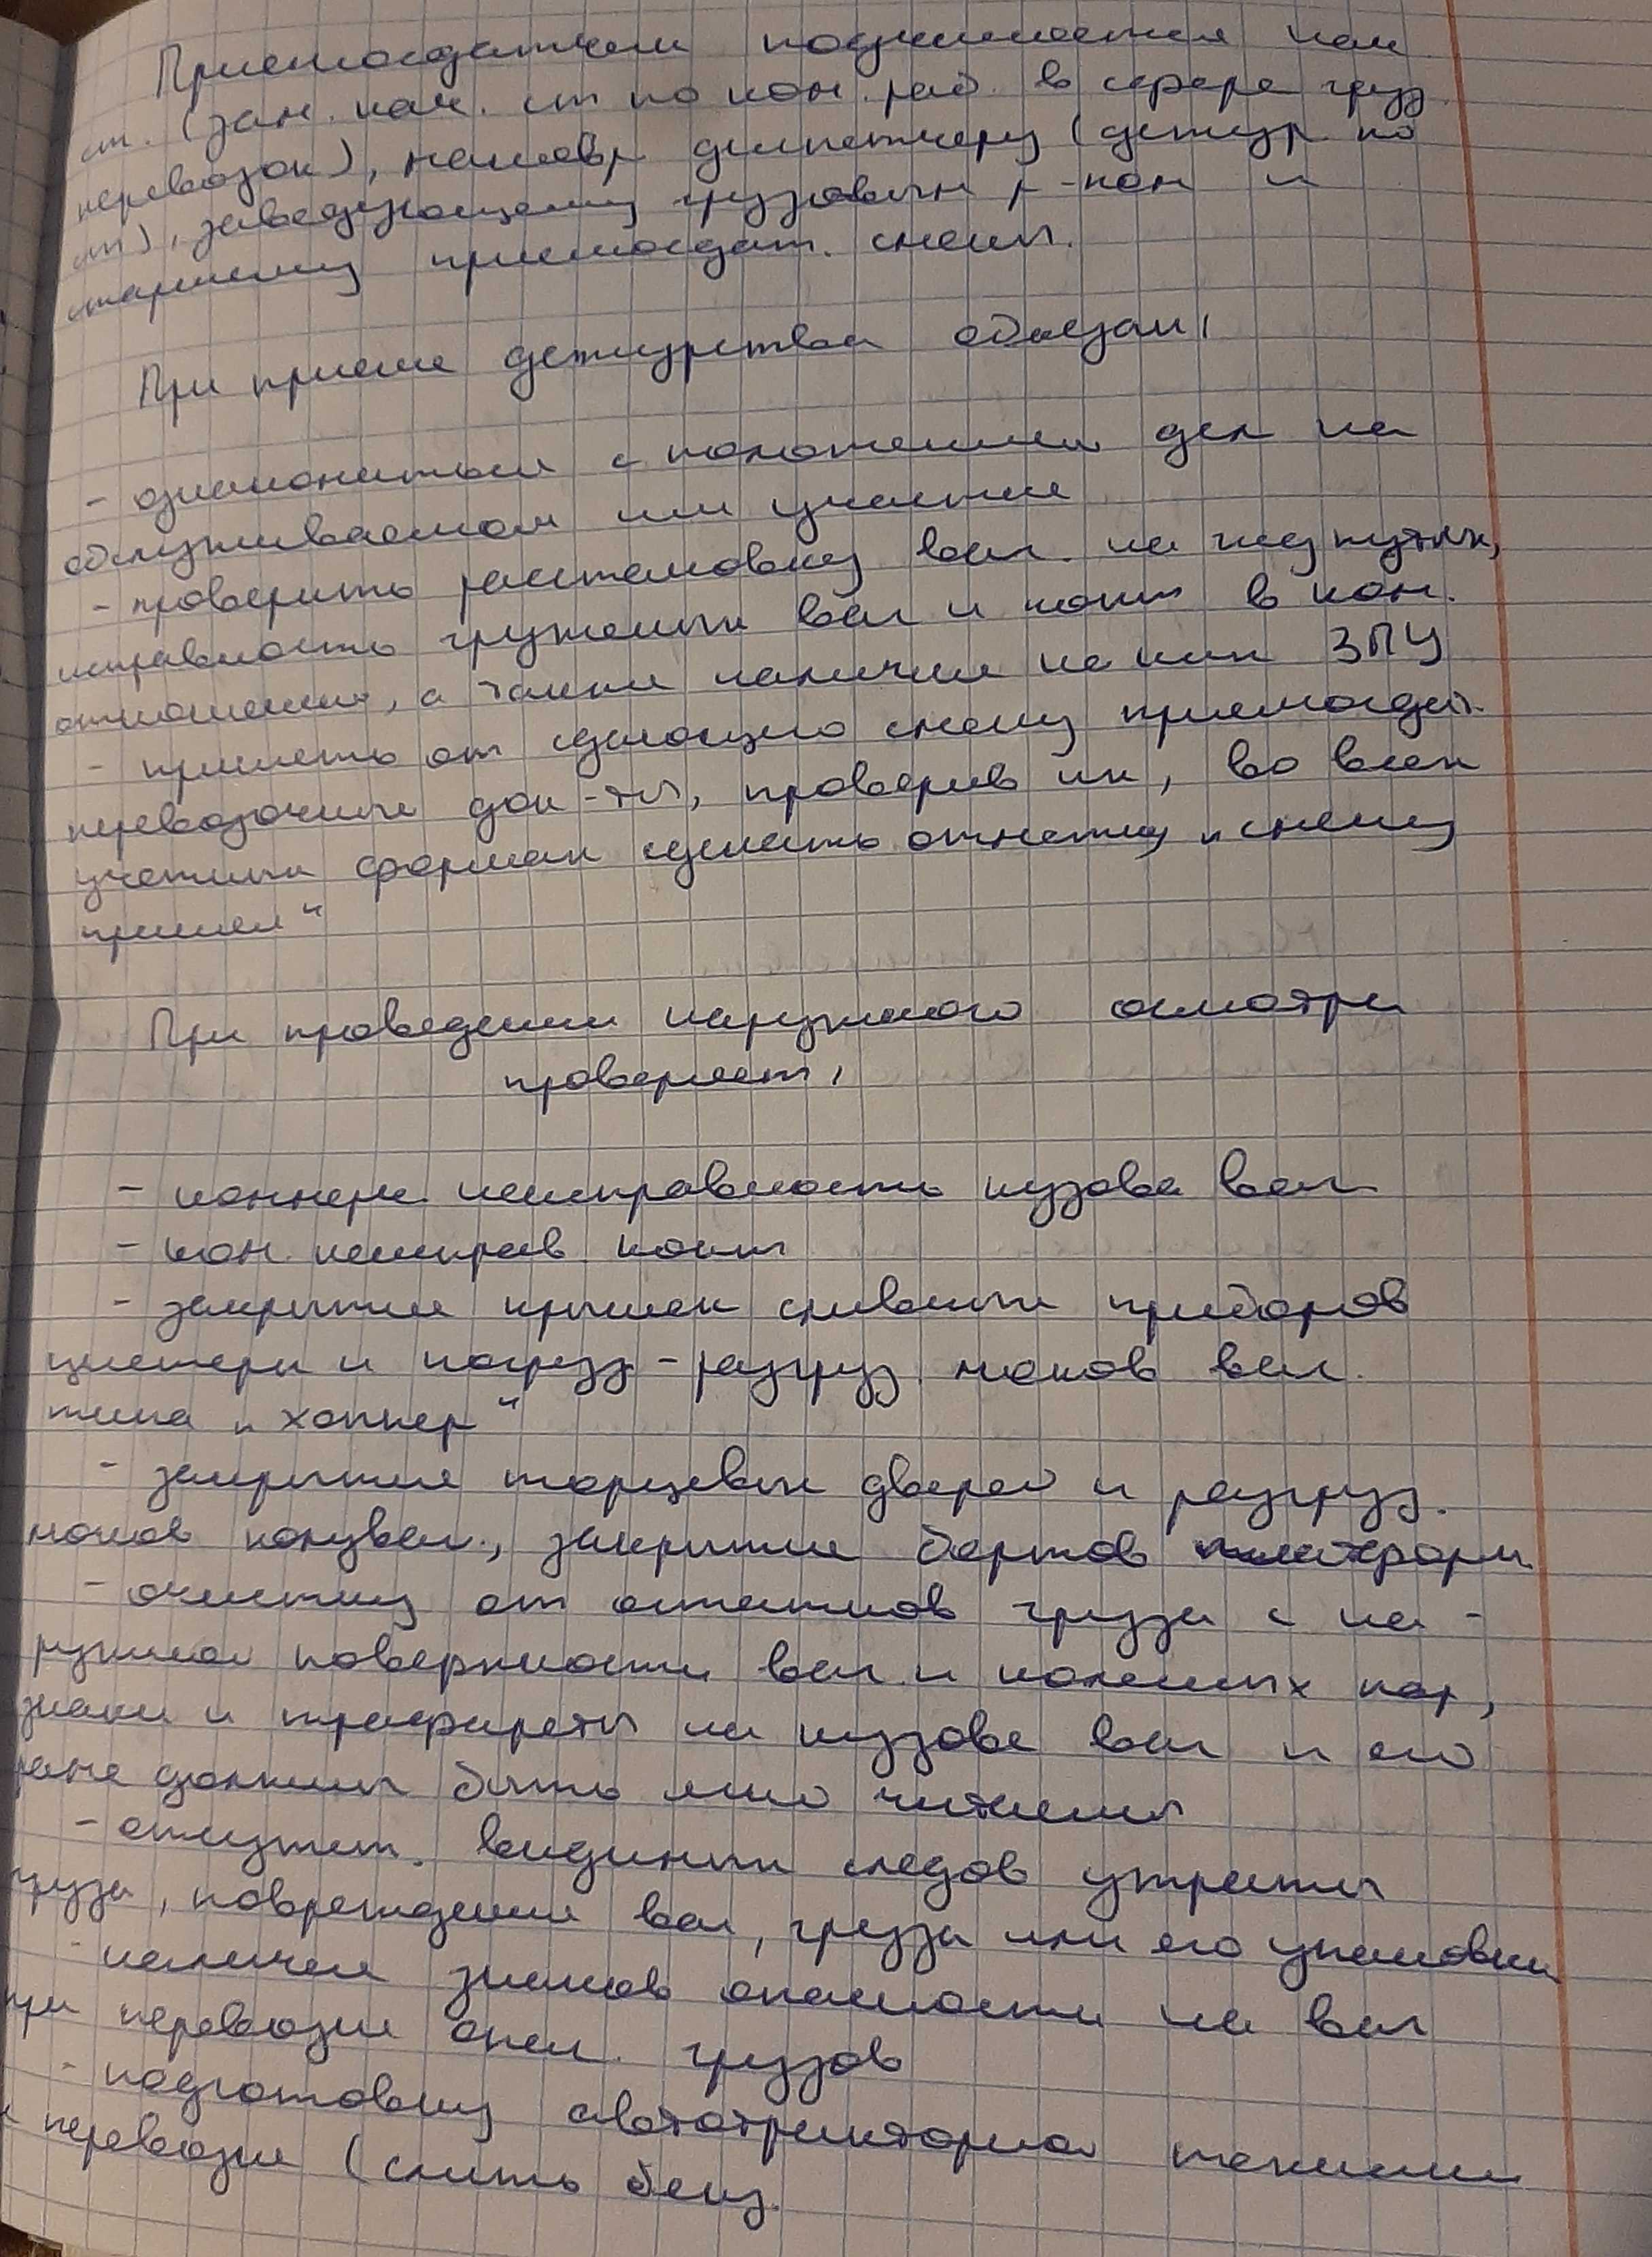 Приемосдатчик подчиняется нач.
ст. (зам. нач. ст по ком. раб. в сфере груз
перевозок), маневр диспетчеру (дежур. по
ст), заведующему грузовым р-ном и
старшему приемосдат. смены.
При приеме дежурства обязан,
- ознакомиться с положением дел на
обслуживаемом им участке
- проверить расстановку ваг. на жд путях,
исправность груженых ваг и конт в ком.
отношении, а также наличие на них ЗПУ
- принять от сдающего смену приемосдат.
перевозочные док-ты, проверив их, во всех
учетных формах сделать отметку "смену
принял"
При проведении наружного осмотра
проверяет,
- коммерч. неисправность кузова ваг
- ком. неисправ. конт
- закрытие крышек сливных приборов
цистерн и погруз-разгруз. люков ваг.
типа "хоппер"
- закрытие торцевых дверей и разгруз.
люков полуваг., закрытие бортов платформ
- очистку от остатков груза с на-
ружной поверхности ваг. и колесных пар,
знаки и трафареты на кузове ваг и его
раме должны быть ясно читаемы
- отсутст. видимых следов утраты
груза, повреждения ваг, груза или его упаковки
- наличие знаков опасности на ваг
при перевозке опас. грузов
- подготовку автотракторной техники
к перевозке (слить бенз.